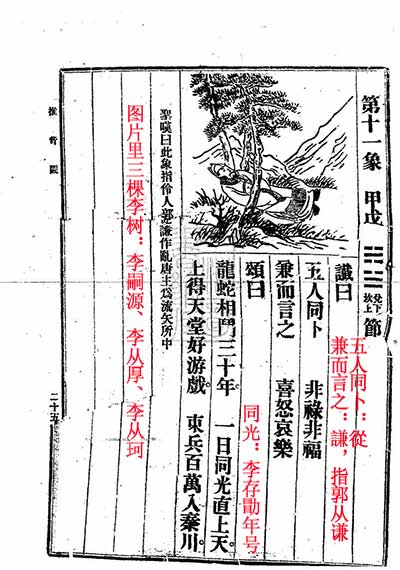 第十一象 甲戌 兌下坎上 節
讖曰
五人同卜：從
兼而言之：謙，指郭从谦
五人同卜 非祿非福
兼而言之 喜怒哀樂
頌曰
同光：李存勖年号
龍蛇相鬥三十年 一日同光直上天。
上得天堂好游戲。 東兵百萬入秦川。
聖嘆曰此象指伶人郭從謙作亂唐主爲流矢所中
图片里三棵李树：李嗣源、李从厚、李从珂
推背圖
二十五